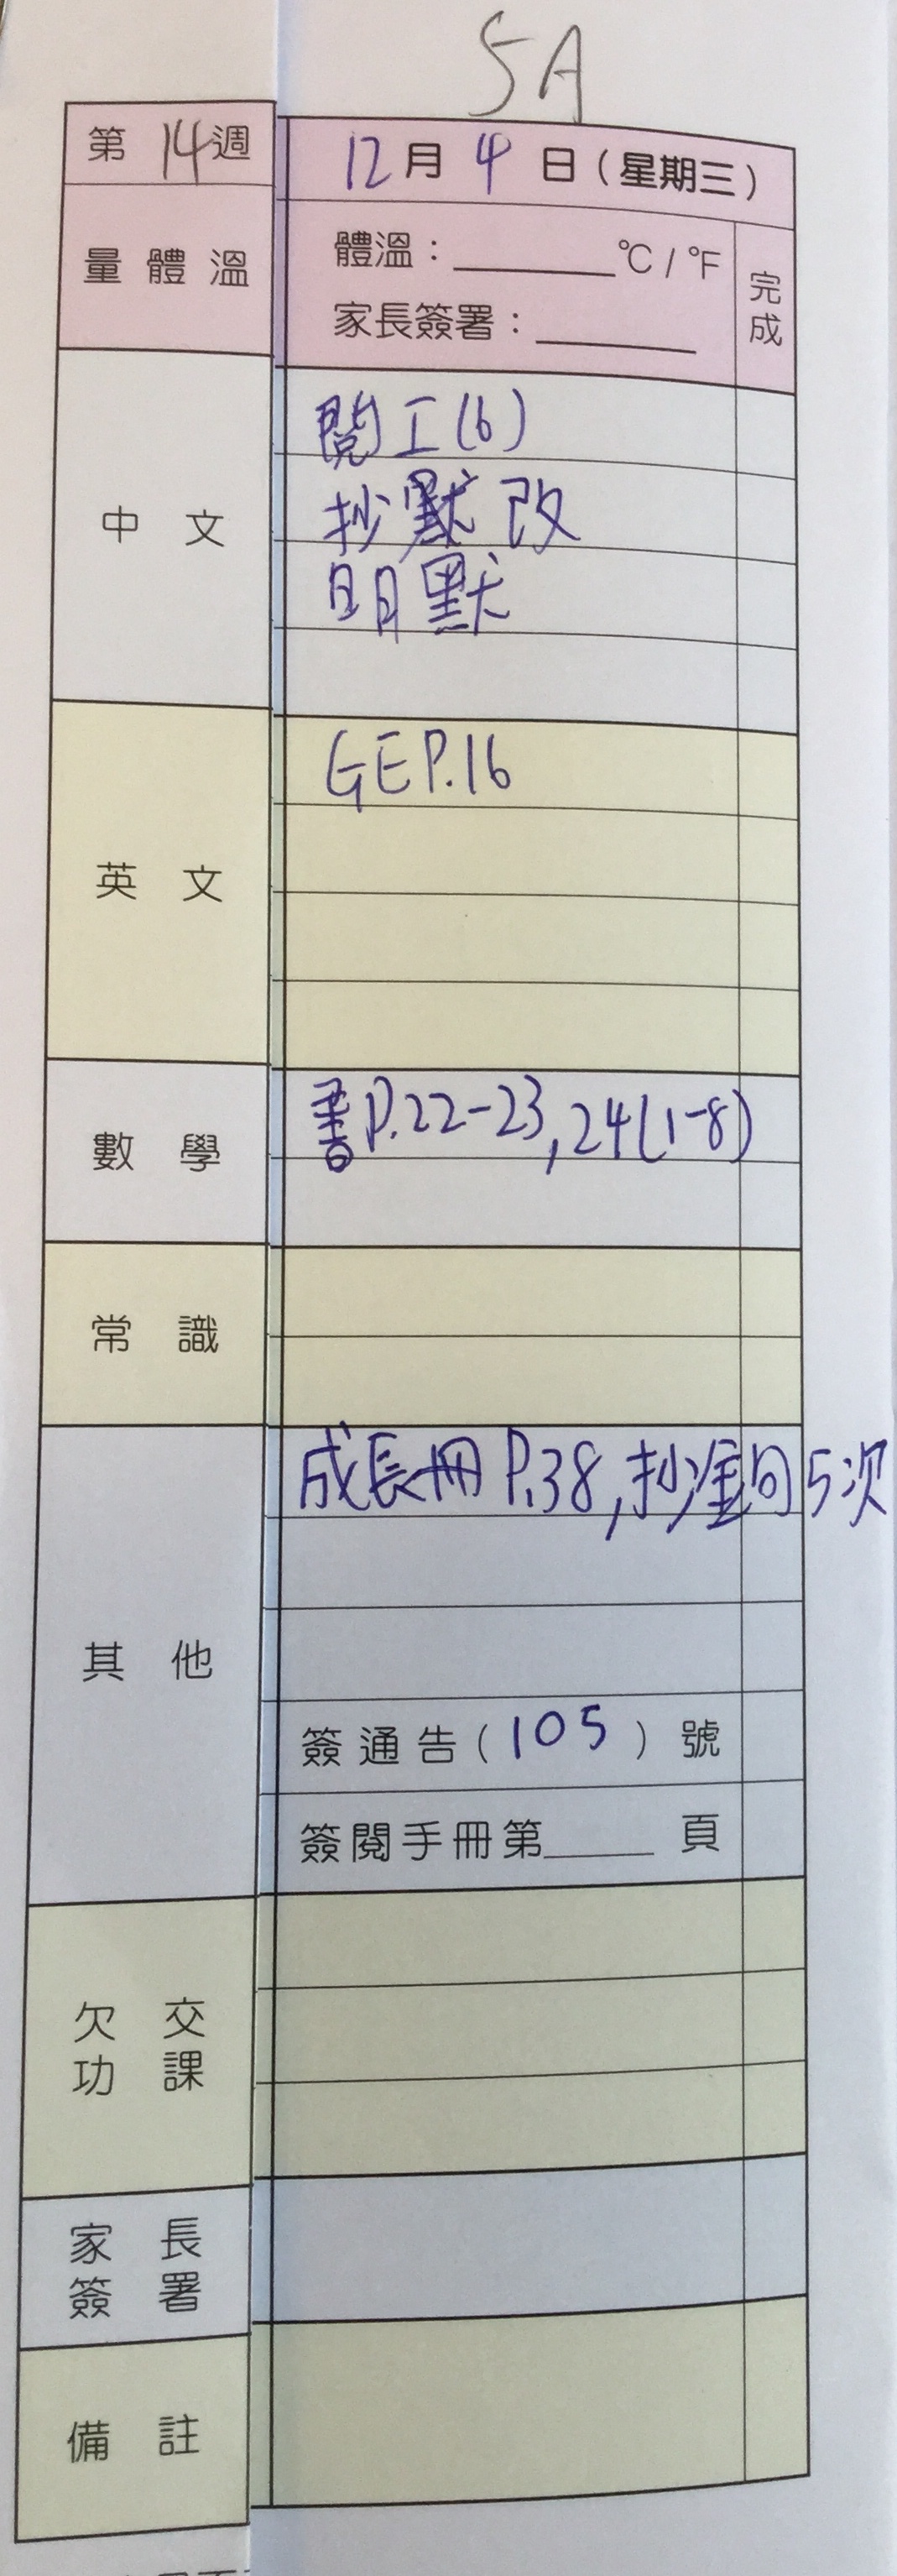 5A
第 14 週
12 月 4 日 (星期三)
量 體 溫
體溫：______°C / °F
家長簽署：______
完成
中 文
閱工(6)
抄默改
明默
英 文
GE P.16
數 學
書P.22-23,24(1-8)
常 識
其 他
成長冊 P.38,抄金句5次
簽通告 (105) 號
簽閱手冊第____頁
欠 交
功 課
家 長
簽 署
備 註